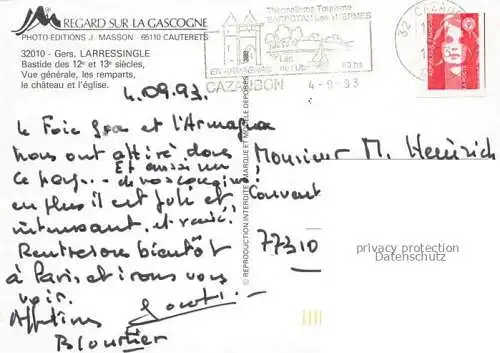 REGARD SUR LA GASCOGNE
PHOTO-EDITIONS J. MASSON 65110 CAUTERETS
32010 - Gers. LARRESSINGLE
Bastide des 12e et 13e siècles,
Vue générale, les remparts,
le château et l'église.
Thermalisme Tourisme
BARBOTAN LES THERMES
EN ARMAGNAC
Lac
de l'Uby
CAZAUBON 4-9-93
32 CAZAUBON
4.09.93.
Le Foie Gras et l'Armagnac
nous ont attiré dans
Et aussi un
ce pays... de vos cousins!
en plus il est joli et
intéressant, et varié!
Rentrerons bientôt
à Paris et irons vous
voir.
Affections
© REPRODUCTION INTERDITE MARQUE ET MODELE DEPOSES
Monsieur M. Heinrich
Couvent
77310
privacy protection
Datenschutz